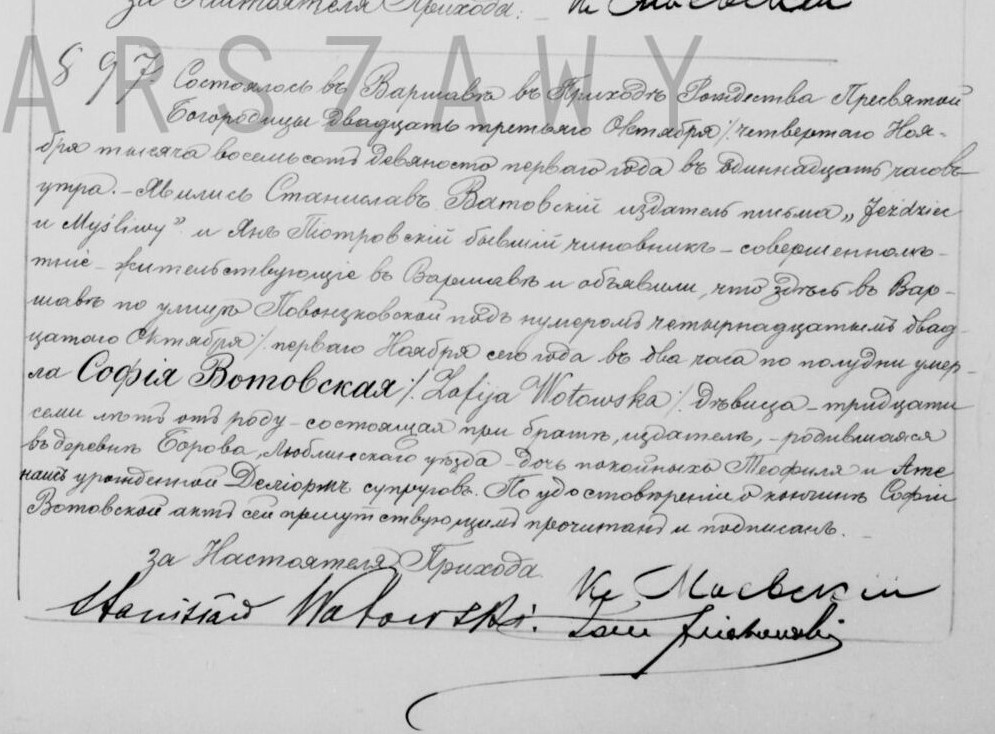 за Настоятеля Прихода: Кс Маевскій
ARSZAWY
§ 97 Состоялось въ Варшавѣ въ Приходѣ Рождества Пресвятой
Богородицы двадцать третьяго Октября /: четвертаго Ноя-
бря тысяча восемьсотъ девяносто перваго года въ одиннадцать часовъ
утра. - Явились Станиславъ Ватовскій издатель письма „Jeździec
и Myśliwy” и Янъ Піотровскій бывшій чиновникъ - совершеннолѣ-
тніе - жительствующіе въ Варшавѣ и объявили, что здѣсь въ Вар-
шавѣ по улицѣ Повонзковской подъ нумеромъ четырнадцатымъ двад-
цатого Октября /: перваго Ноября сего года въ два часа по полудни умер-
ла Софія Вотовская /: Zofija Wotowska /: дѣвица - тридцати
семи лѣтъ отъ роду - состоящая при братѣ, издателѣ, - родившаяся
въ деревнѣ Борова, Люблинскаго уѣзда - дочь покойныхъ Теофиля и
урожденной супруговъ. По удостовѣреніи о кончинѣ Софіи
Вотовской актъ сей присутствующимъ прочитанъ и подписанъ. -
за Настоятеля Прихода Кс Маевскій
Stanisław Watowski. Jan